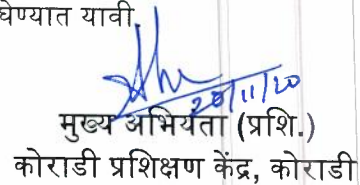 घेण्यात यावी.
20/11/20
मुख्य अभियंता (प्रशि.)
कोराडी प्रशिक्षण केंद्र, कोराडी